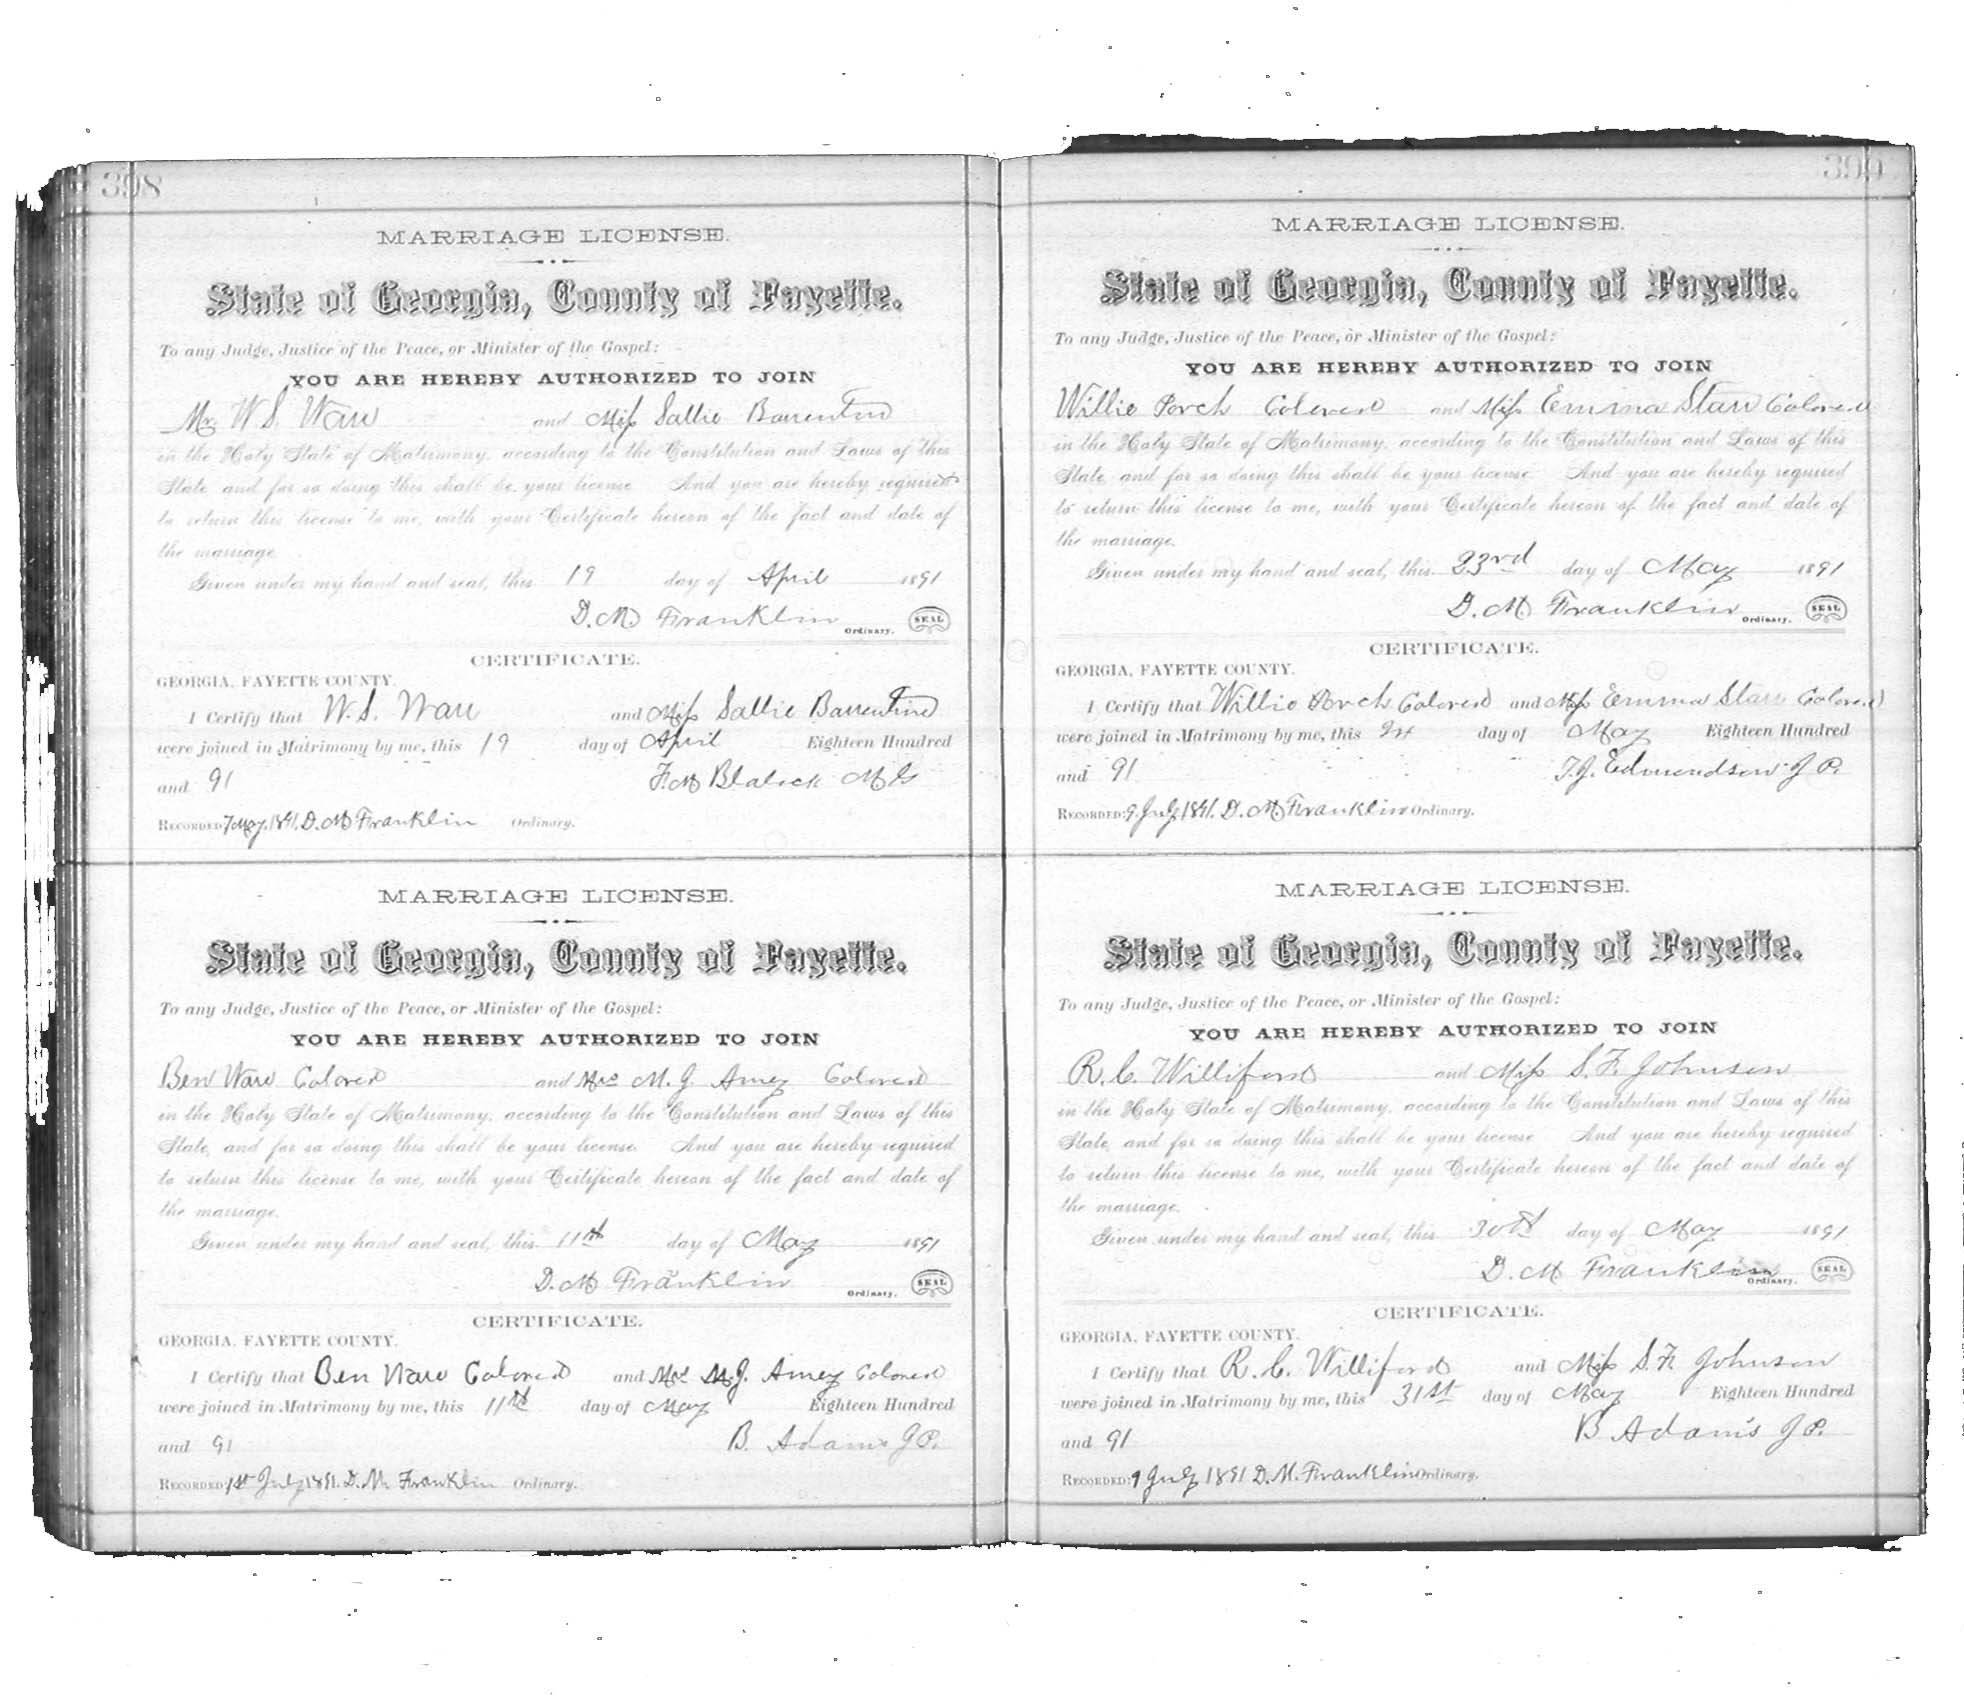 398
MARRIAGE LICENSE.
State of Georgia, County of Fayette.
To any Judge, Justice of the Peace, or Minister of the Gospel:
YOU ARE HEREBY AUTHORIZED TO JOIN
Mr. W. S. Warr and Miss Sallie Barrentine
in the Holy State of Matrimony, according to the Constitution and Laws of this
State, and for so doing this shall be your license. And you are hereby required
to return this license to me, with your Certificate hereon of the fact and date of
the marriage.
Given under my hand and seal, this 19 day of April 1891
D. M. Franklin Ordinary. SEAL
CERTIFICATE.
GEORGIA, FAYETTE COUNTY.
I Certify that W. S. Warr and Miss Sallie Barrentine
were joined in Matrimony by me, this 19 day of April Eighteen Hundred
and 91 F. M. Blalock M G
RECORDED: 7 May. 1891. D. M Franklin Ordinary.
MARRIAGE LICENSE.
State of Georgia, County of Fayette.
To any Judge, Justice of the Peace, or Minister of the Gospel:
YOU ARE HEREBY AUTHORIZED TO JOIN
Ben Ware Colored and Mrs M. J. Amey Colored
in the Holy State of Matrimony, according to the Constitution and Laws of this
State, and for so doing this shall be your license. And you are hereby required
to return this license to me, with your Certificate hereon of the fact and date of
the marriage.
Given under my hand and seal, this 11th day of May 1891
D. M Franklin Ordinary. SEAL
CERTIFICATE.
GEORGIA, FAYETTE COUNTY.
I Certify that Ben Ware Colored and Mrs M. J. Amey Colored
were joined in Matrimony by me, this 11th day of May Eighteen Hundred
and 91 B. Adams J P.
RECORDED: 1st July 1891. D. M. Franklin Ordinary.
399
MARRIAGE LICENSE.
State of Georgia, County of Fayette.
To any Judge, Justice of the Peace, or Minister of the Gospel:
YOU ARE HEREBY AUTHORIZED TO JOIN
Willie Porch Colored and Miss Emma Starr Colored
in the Holy State of Matrimony, according to the Constitution and Laws of this
State, and for so doing this shall be your license. And you are hereby required
to return this license to me, with your Certificate hereon of the fact and date of
the marriage.
Given under my hand and seal, this 23rd day of May 1891
D. M. Franklin Ordinary. SEAL
CERTIFICATE.
GEORGIA, FAYETTE COUNTY.
I Certify that Willie Porch Colored and Miss Emma Starr Colored
were joined in Matrimony by me, this day of May Eighteen Hundred
and 91 T. J. Edmondson J P.
RECORDED: 9. July 1891. D. M Franklin Ordinary.
MARRIAGE LICENSE.
State of Georgia, County of Fayette.
To any Judge, Justice of the Peace, or Minister of the Gospel:
YOU ARE HEREBY AUTHORIZED TO JOIN
R. C. Williford and Miss S. F. Johnson
in the Holy State of Matrimony, according to the Constitution and Laws of this
State, and for so doing this shall be your license. And you are hereby required
to return this license to me, with your Certificate hereon of the fact and date of
the marriage.
Given under my hand and seal, this 30th day of May 1891
D. M. Franklin Ordinary. SEAL
CERTIFICATE.
GEORGIA, FAYETTE COUNTY.
I Certify that R. C. Williford and Miss S. F. Johnson
were joined in Matrimony by me, this 31st day of May Eighteen Hundred
and 91 B Adams J P.
RECORDED: 9 July 1891 D. M. Franklin Ordinary.